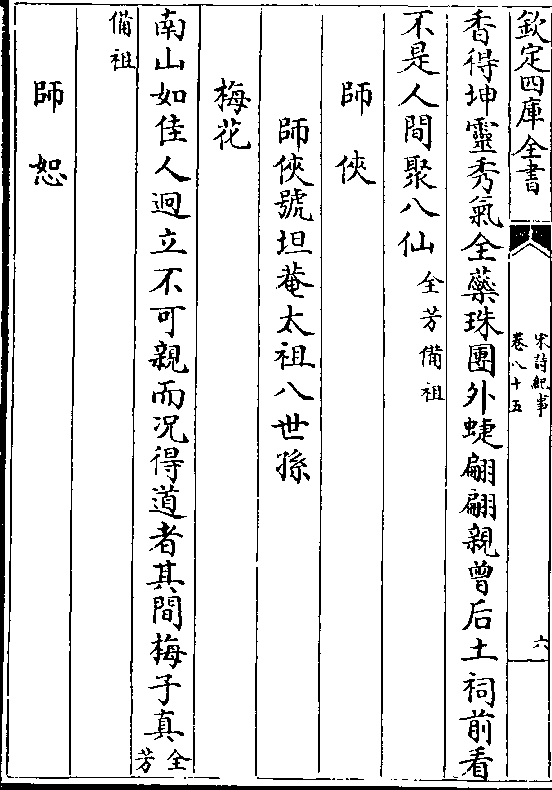 欽定四庫全書
宋詩紀事
卷八十五
六
香得坤靈秀氣全蘂珠團外蜨翩翩親曾后土祠前看
不是人間聚八仙 全芳備祖
師俠
師俠號坦菴太祖八世孫
梅花
南山如佳人迥立不可親而况得道者其間梅子真 全芳
備祖
師恕